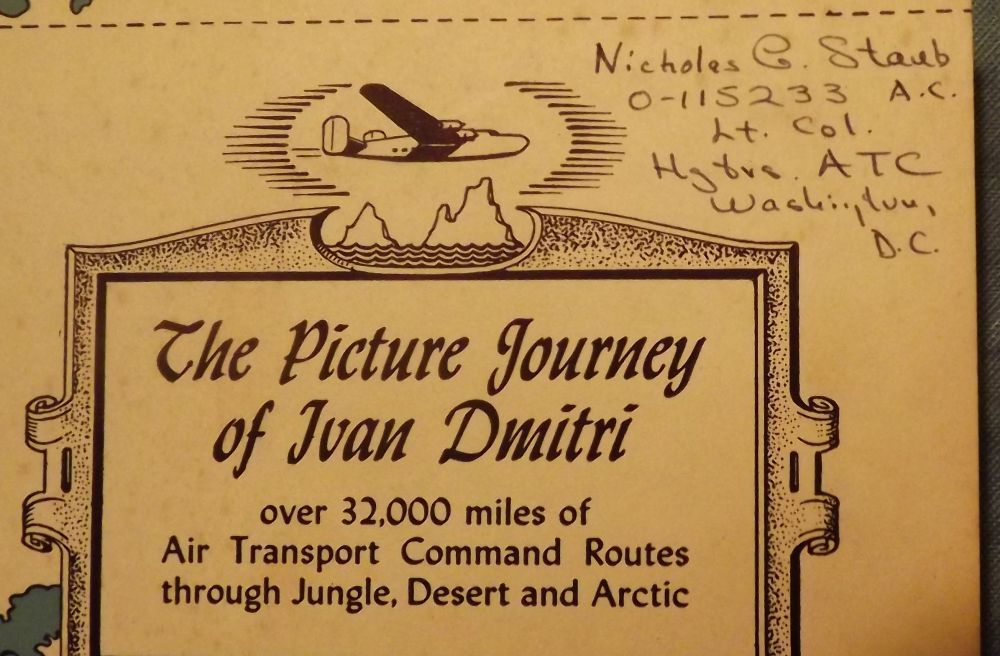 Nicholas C. Staub
O-115233 A.C.
Lt. Col.
Hqtrs. ATC
Washington,
D.C.
The Picture Journey
of Ivan Dmitri
over 32,000 miles of
Air Transport Command Routes
through Jungle, Desert and Arctic